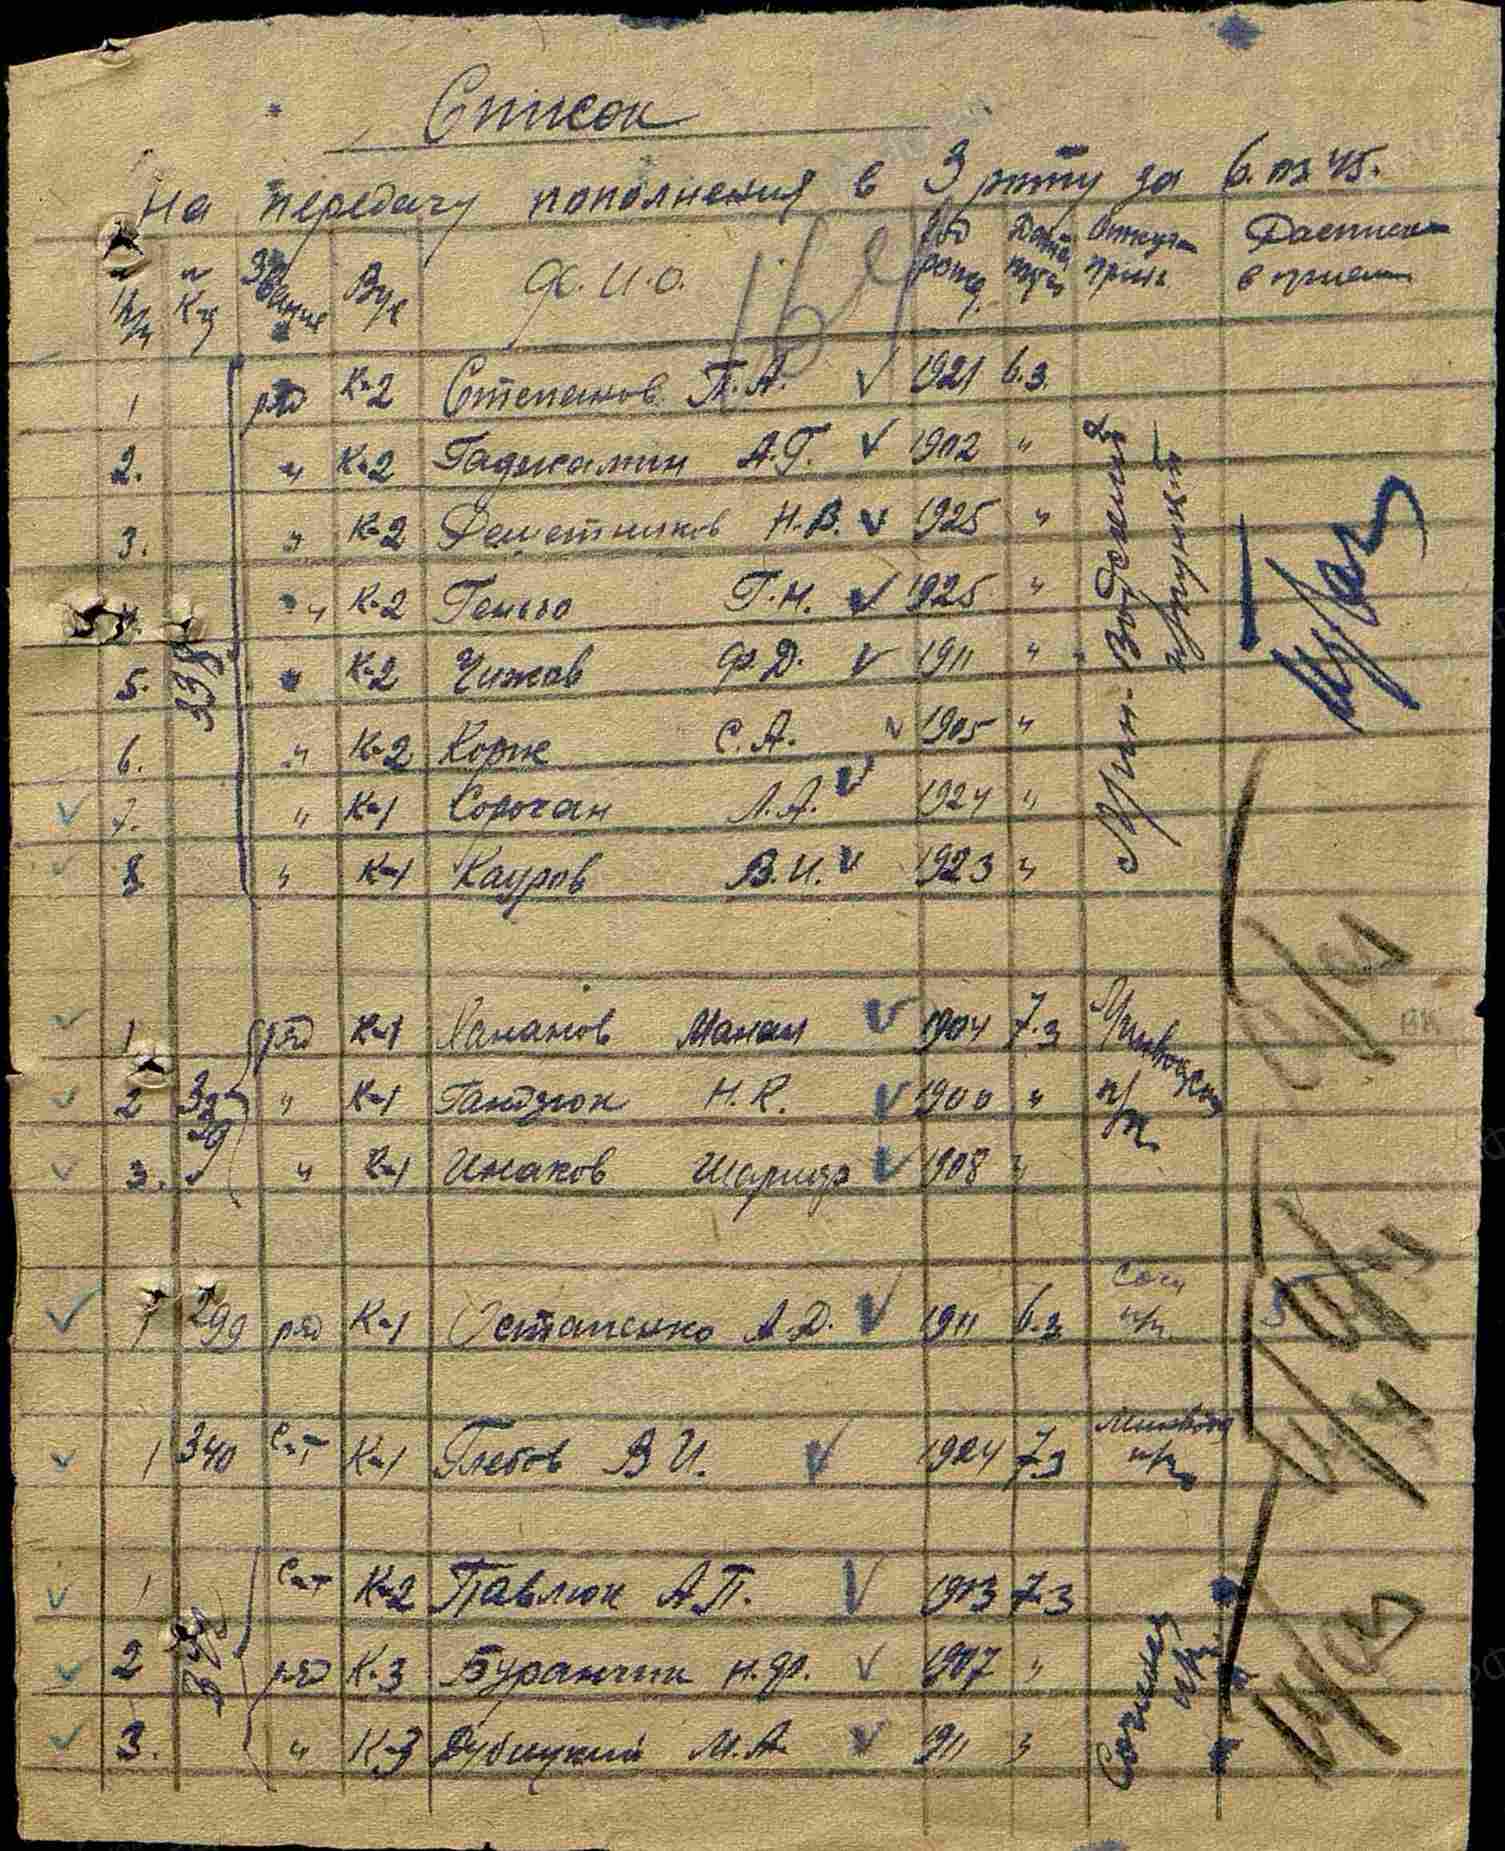 Список
На передачу пополнения в 3 роту за 6. 03 45.
164
№ п/п № К-ц Звание Вус Ф. И. О. Год рожд. Дата Откуда приб Расписка в приеме
338
1 ряд К-2 Степанов П.А. 1921 6.3.
2. " К-2 Гаджамин А.Г. 1902 "
3. " К-2 Решетников Н.В. 1925 "
4. " К-2 Генсго Г.Н. 1925 "
5. " К-2 Чижов Ф.Д. 1911 "
6. " К-2 Корж С.А. 1905 "
7. " К-1 Сорочан Л.А. 1924 "
8 " К-1 Кауров В.И. 1923 "
Мин-Водский
пр/пункт
1 ряд К-1 Хананов Манан 1904 7.3 Минводск
2 " К-1 Гандзюк Н.К. 1900 " п/п
3. " К-1 Инаков Шариф 1908 "
1 299 ряд К-1 Остапенко А.Д. 1911 6.3 Сочи п/п
1 340 с-т К-1 Глебов В И. 1924 7.3 Минвод п/п
1 с-т К-2 Павлюк А П. 1903 7.3
2 ряд К-3 Буранчик Н.Ф. 1907 "
3. " К-3 Дубицкий М.А. 1911 "